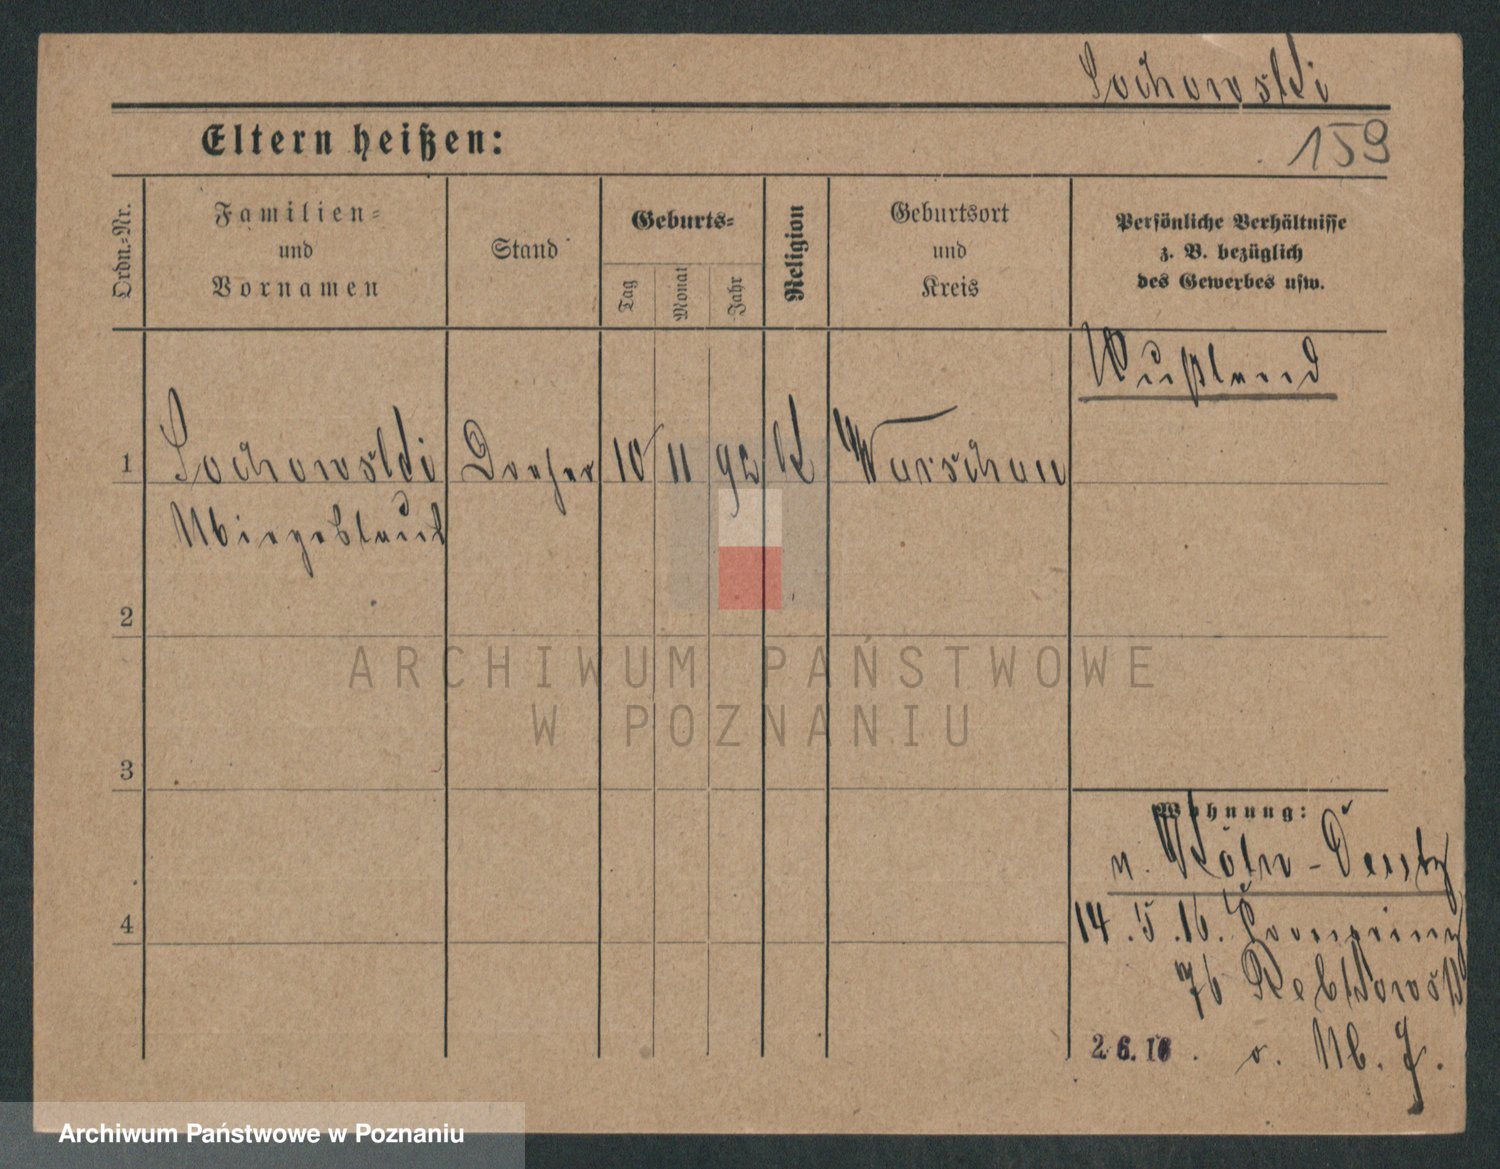 Sochowski
Eltern heißen:
159
Ordn.-Nr.
Familien-
und
Vornamen
Stand
Geburts-
Tag
Monat
Jahr
Religion
Geburtsort
und
Kreis
Persönliche Verhältnisse
z. B. bezüglich
des Gewerbes usw.
Rußland
1 Sochowski Dreher 10 11 92 K Warschau
2
3
Wohnung:
n. Köln-Deutz
4
14.5.16. Kronprinz
76
2.6.16. v.
ARCHIWUM PAŃSTWOWE
W POZNANIU
Archiwum Państwowe w Poznaniu